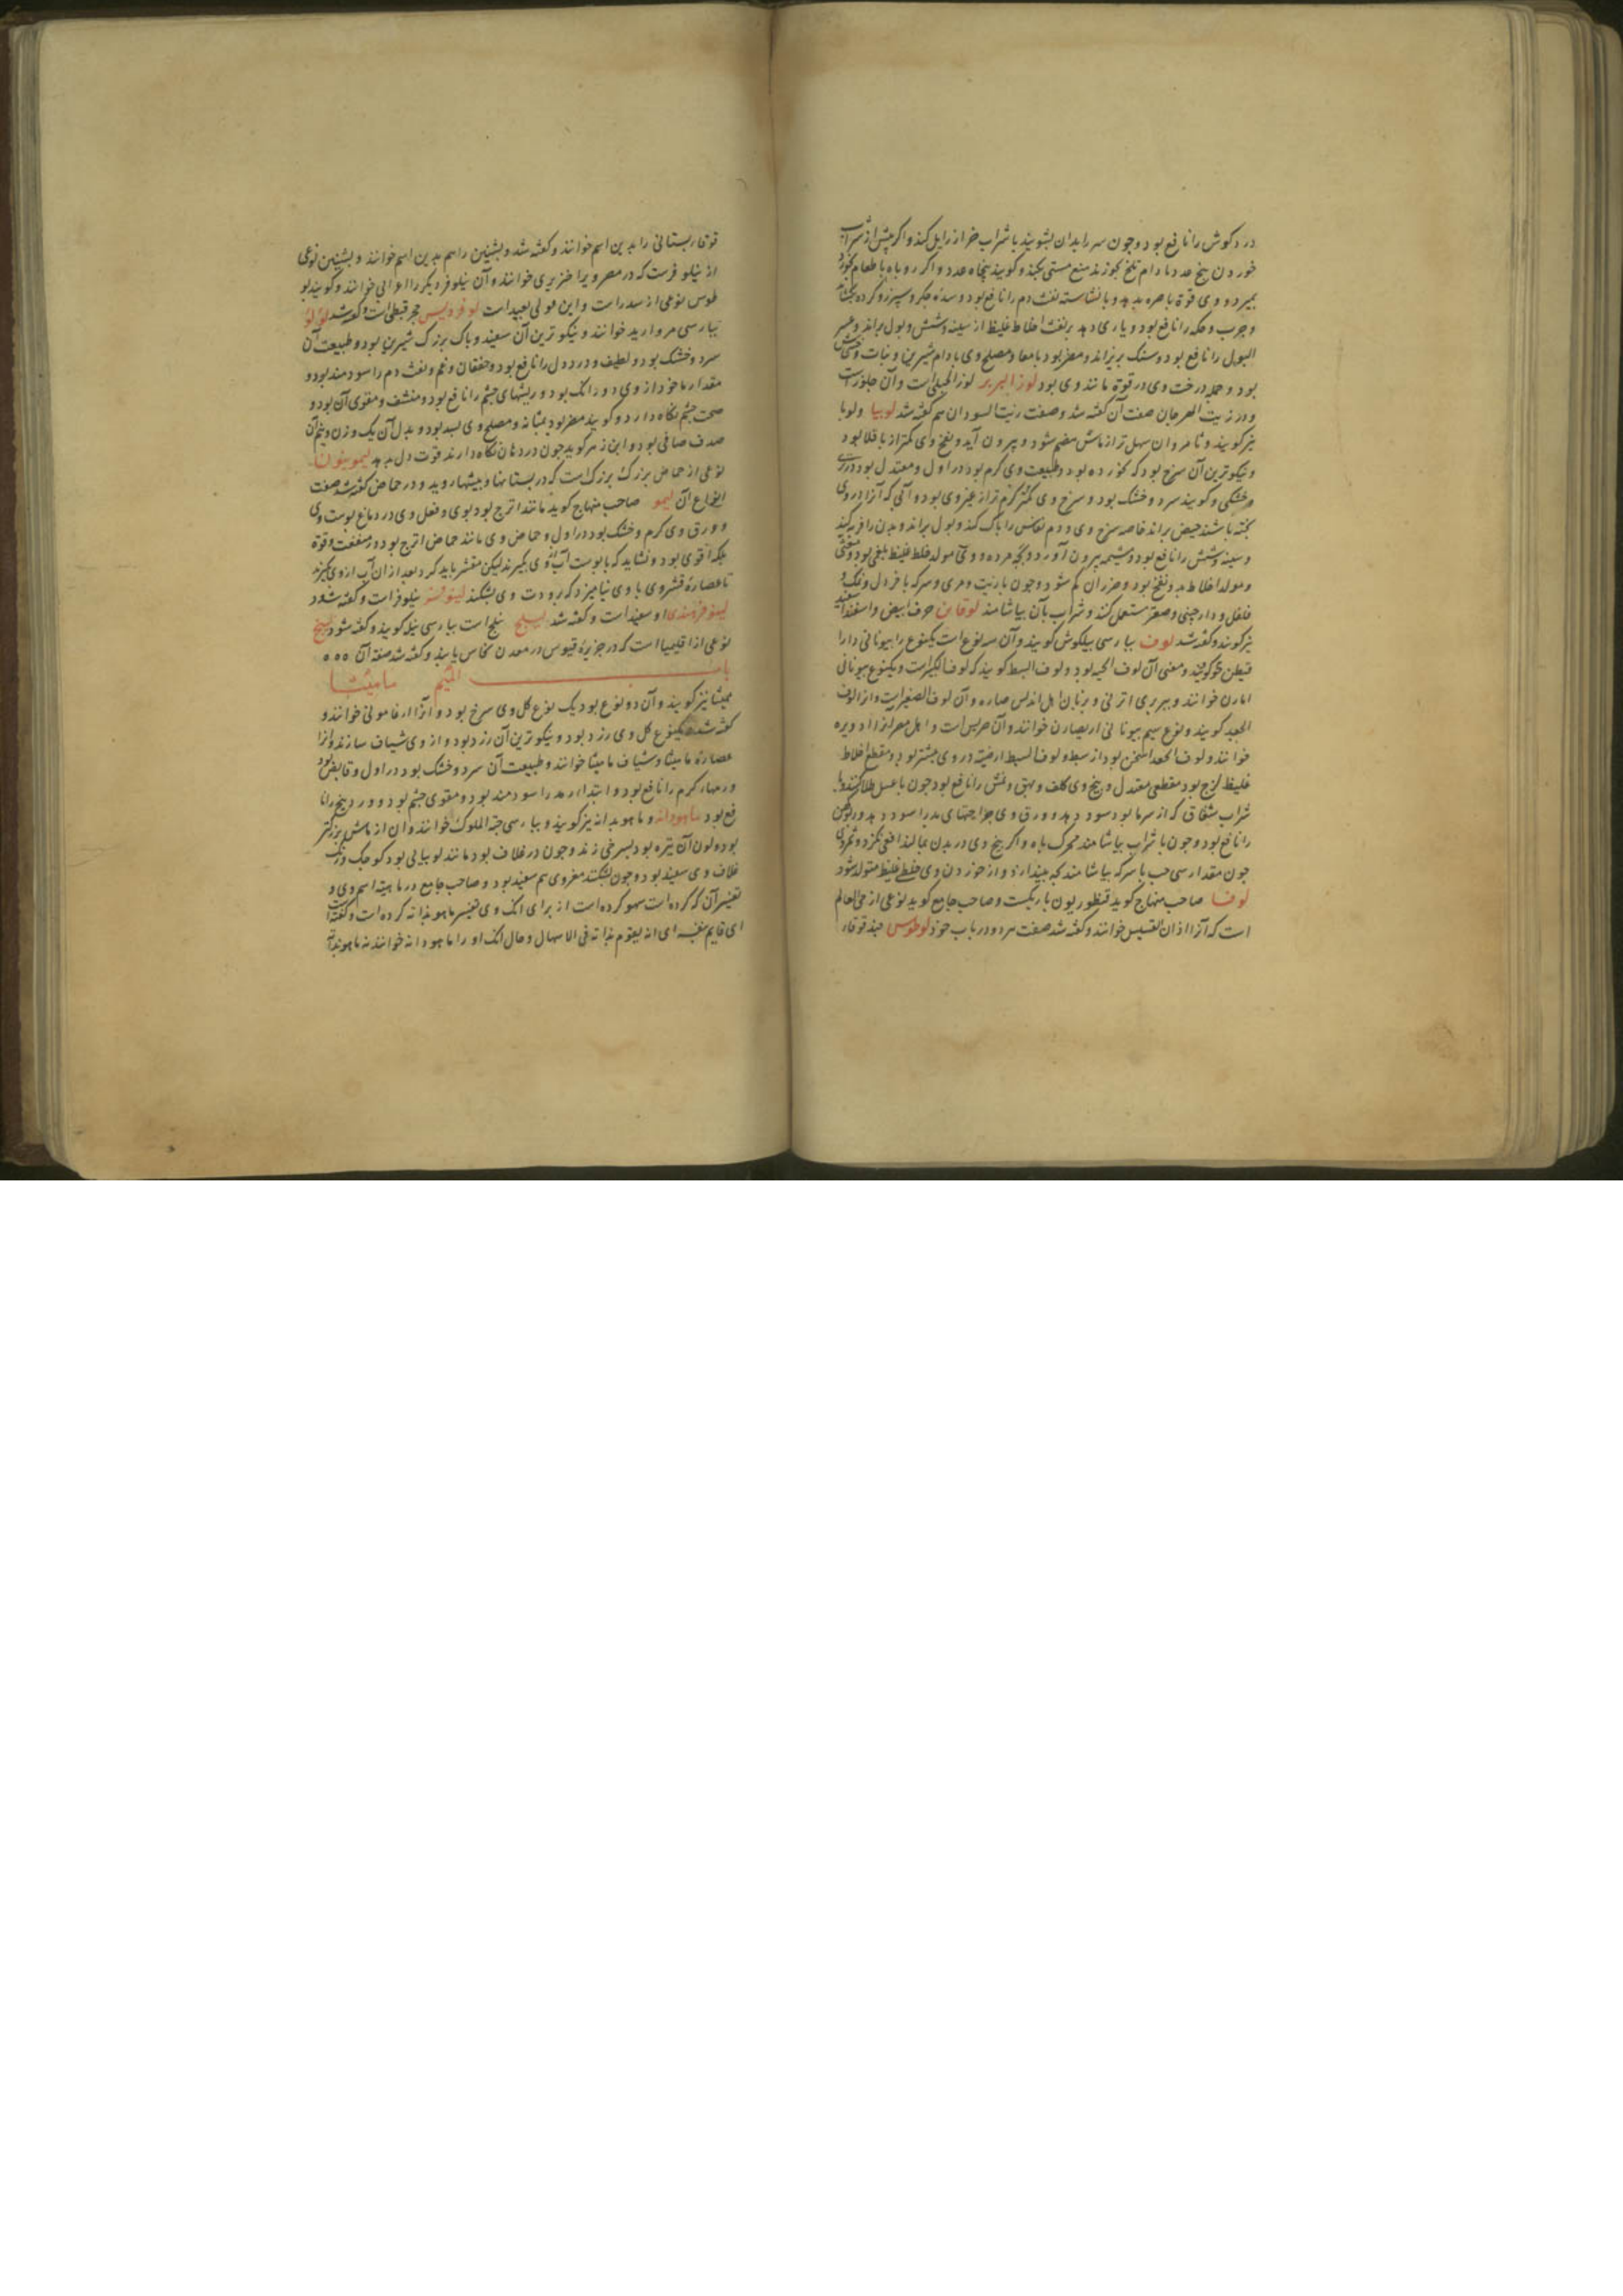 درد کوش را نافع بود و چون سر را بدان بشویند با شراب خراز زایل کند و اکر پیش از شراب
خوردن پنج عدد بادام تلخ بخورند منع مستی بکند و کویند پنجاه عدد و اکر روباه با طعام بخورد
بمیرد و وی قوة باصره بدهد و با نشاسته نفث دم را نافع بود و سده جکر و سپرز و کرده بکشاید
و جرب و حکه را نافع بود و یاری دهد بر نفث اخلاط غلیظ از سینه و شش و بول براند و عسر
البول را نافع بود و سنک بریزاند و مضر بود بامعا و مصلح وی بادام شیرین و نبات و خشخاش
بود و جمله درخت وی در قوة مانند وی بود لوز البربر لوز الجبلی است و آن جلوز است
و در زیت الهرجان صفت آن کفته شد و صفت زیت السودان هم کفته شد لوبیا و لوبا
نیز کویند و ثامر و آن سهل تر از ماش هضم شود و بیرون آید و نفخ وی کمتر از باقلا بود
و نیکوترین آن سرخ بود که کرم نخورده بود و طبیعت وی کرم بود در اول و معتدل بود در تری
و خشکی و کویند سرد و خشک بود و سرخ وی کمتر کرم تر از غیر وی بود و آبی که آنرا در وی
پخته باشند حیض براند خاصه سرخ وی و دم نفاس را پاک کند و بول براند و بدن را فربه کند
و سینه و شش را نافع بود و مشیمه بیرون آورد و بچه مرده و وی مولد خلط غلیظ بلغمی بود و مغثی
و مولد اخلاط بد و نفخ بود و ضرر آن کم شود و چون با زیت و مری و سرکه با خردل و نمک و
فلفل و دارچینی و صعتر مستعمل کنند و شراب بآن بیاشامند لوقاین حرف ابیض و اسفند سفید
نیز کویند و کفته شد لوف بپارسی پیلکوش کویند و آن سه نوع است یکنوع را بیونانی دارا
قیطن خوکویند و معنی آن لوف الحیه بود و لوف السبط کویند که لوف الکبیر است و یکنوع بیونانی
امارن خوانند و ببربری اترنی و بزبان اهل اندلس صاره و آن لوف الصغیر است و آنرا لوف
الجعد کویند و نوع سیم بیونانی اریصارن خوانند و آن حریس است و اهل مصر آنرا ادویره
خوانند و لوف الجعد اسخن بود از سبط و لوف السبط ارضیه در وی بیشتر بود و مقطع اخلاط
غلیظ لزج بود مقطعی معتدل و بیخ وی کلف و بهق و نمش را نافع بود چون با عسل طلا کنند و با
شراب شقاق که از سرما بود سود دهد و ورق وی جراحتهای بد را سود دهد و ورکهن
را نافع بود و چون با شراب بیاشامند محرک باه و اکر بیخ وی در بدن بمالند افعی نکزد و ثمر وی
چون مقدار سی حب با سرکه بیاشامند بچه بیندازد و از خوردن وی خلطی غلیظ متولد شود
لوفا صاحب منهاج کوید قنطوریون باریکست و صاحب جامع کوید نوعی از حی العالم
است که آنرا اذان القسیس خوانند و کفته شد صفت هر دو در باب خود لوطوس حندقوقا و
قوقا بستانی را بدین اسم خوانند و کفته شد و بشنین را هم بدین اسم خوانند و بشنین نوعی
از نیلوفرست که در مصر ویرا خنزیری خوانند و آن نیلوفر دیکر را اعرابی خوانند و کویند لو
طوس نوعی از سدر است و این قولی بعید است لوفردیس حجر قبطی است و کفته شد لؤلؤ
بپارسی مروارید خوانند و نیکوترین آن سفید و پاک بزرک شیرین بود و طبیعت آن
سرد و خشک بود و لطیف و درد دل را نافع بود و خفقان و غم و نفث دم را سودمند بود و
مقدار ماخوذ از وی دو دانک بود و ریشهای چشم را نافع بود و منشف و مقوی آن بود و
صحت چشم نکاه دارد و کویند مضر بود بمثانه و مصلح وی بسد بود و بدل آن یک وزن و نیم آن
صدف صافی بود و ابن زهر کوید چون در دهان نکاه دارند قوت دل بدهد لیمونیون
نوعی از حماض بزرک بزرک است که در بستانها و بیشها روید و در حماض کفته شد صفت
انواع آن لیمو صاحب منهاج کوید مانند اترج بود بوی و فعل وی در دماغ پوست وی
و ورق وی کرم و خشک بود در اول و حماض وی مانند حماض اترج بود در منفعت و قوة
بلکه اقوی بود و نشاید که با پوست آب آن وی بکیرند لیکن مقشر باید کرد بعد از آن آب از وی بکیرند
تا عصارة قشر وی با وی نیامیزد که برودت وی بشکند لینوفسه نیلوفر است و کفته شود
لینوفر هندی او سعید است و کفته شد لیلج نیلج است بپارسی نیل کویند و کفته شود لینخ
نوعی از اقلیمیا است که در جزیرة قبرس در معدن نحاس یابند و کفته شد صفة آن ٥٥٥
باب المیم مامیثا
ممیثا نیز کویند و آن دو نوع بود یک نوع کل وی سرخ بود و آنرا ارغامونی خوانند و
کفته شد و یکنوع کل وی زرد بود و نیکوترین آن زرد بود و از وی شیاف سازند و آنرا
عصارة مامیثا و شیاف مامیثا خوانند و طبیعت آن سرد و خشک بود در اول و قابض بود
ورمهاء کرم را نافع بود و ابتداء رمد را سودمند بود و مقوی چشم بود و ورد بیخ را نا
فع بود ماهودانه و ماهوبدانه نیز کویند و بپارسی حب الملوک خوانند و آن از ماش بزرکتر
بود و لون آن تیره بود بسرخی زند و چون در غلاف بود مانند لوبیائی بود کوچک و رنک
غلاف وی سفید بود و چون بشکنند مغز وی هم سفید بود و صاحب جامع در ماهیة اسم وی و
تفسیر آن که کرده است سهو کرده است از برای آنک وی تفسیر ماهوبدانه کرده است و کفته است
ای قایم بنفسه ای انه یقوم بذاته فی الاسهال و حال آنک او را ماهودانه خوانند نه ماهوبدانه